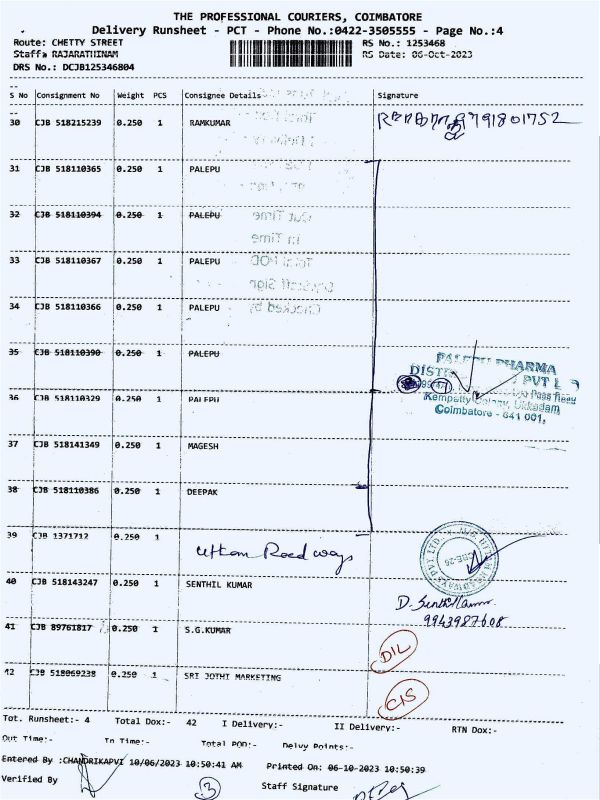 THE PROFESSIONAL COURIERS, COIMBATORE
Delivery Runsheet - PCT - Phone No.:0422-3505555 - Page No.:4
Route: CHETTY STREET RS No.: 1253468
Staff: RAJARATHINAM RS Date: 06-Oct-2023
DRS No.: DCJB125346804
S No Consignment No Weight PCS Consignee Details Signature
30 CJB 518215239 0.250 1 RAMKUMAR 791801752
31 CJB 518110365 0.250 1 PALEPU
32 CJB 518110394 0.250 1 PALEPU
33 CJB 518110367 0.250 1 PALEPU
34 CJB 518110366 0.250 1 PALEPU
35 CJB 518110390 0.250 1 PALEPU
PALEPU PHARMA
PVT L
Pass Road
36 CJB 518110329 0.250 1 PALEPU
Kempatty Colony, Ukkadam
Coimbatore - 641 001.
37 CJB 518141349 0.250 1 MAGESH
38 CJB 518110386 0.250 1 DEEPAK
39 CJB 1371712 0.250 1 Uttam Road ways
40 CJB 518143247 0.250 1 SENTHIL KUMAR
D. Senthil Kumar
9943987608
41 CJB 89761817 0.250 1 S.G.KUMAR
DIL
42 CJB 518069238 0.250 1 SRI JOTHI MARKETING
CIS
Tot. Runsheet:- 4 Total Dox:- 42 I Delivery:- II Delivery:- RTN Dox:-
Out Time:- In Time:- Total POD:- Delvy Points:-
Entered By :CHANDRIKAPVI 10/06/2023 10:50:41 AM Printed On: 06-10-2023 10:50:39
Verified By 3 Staff Signature